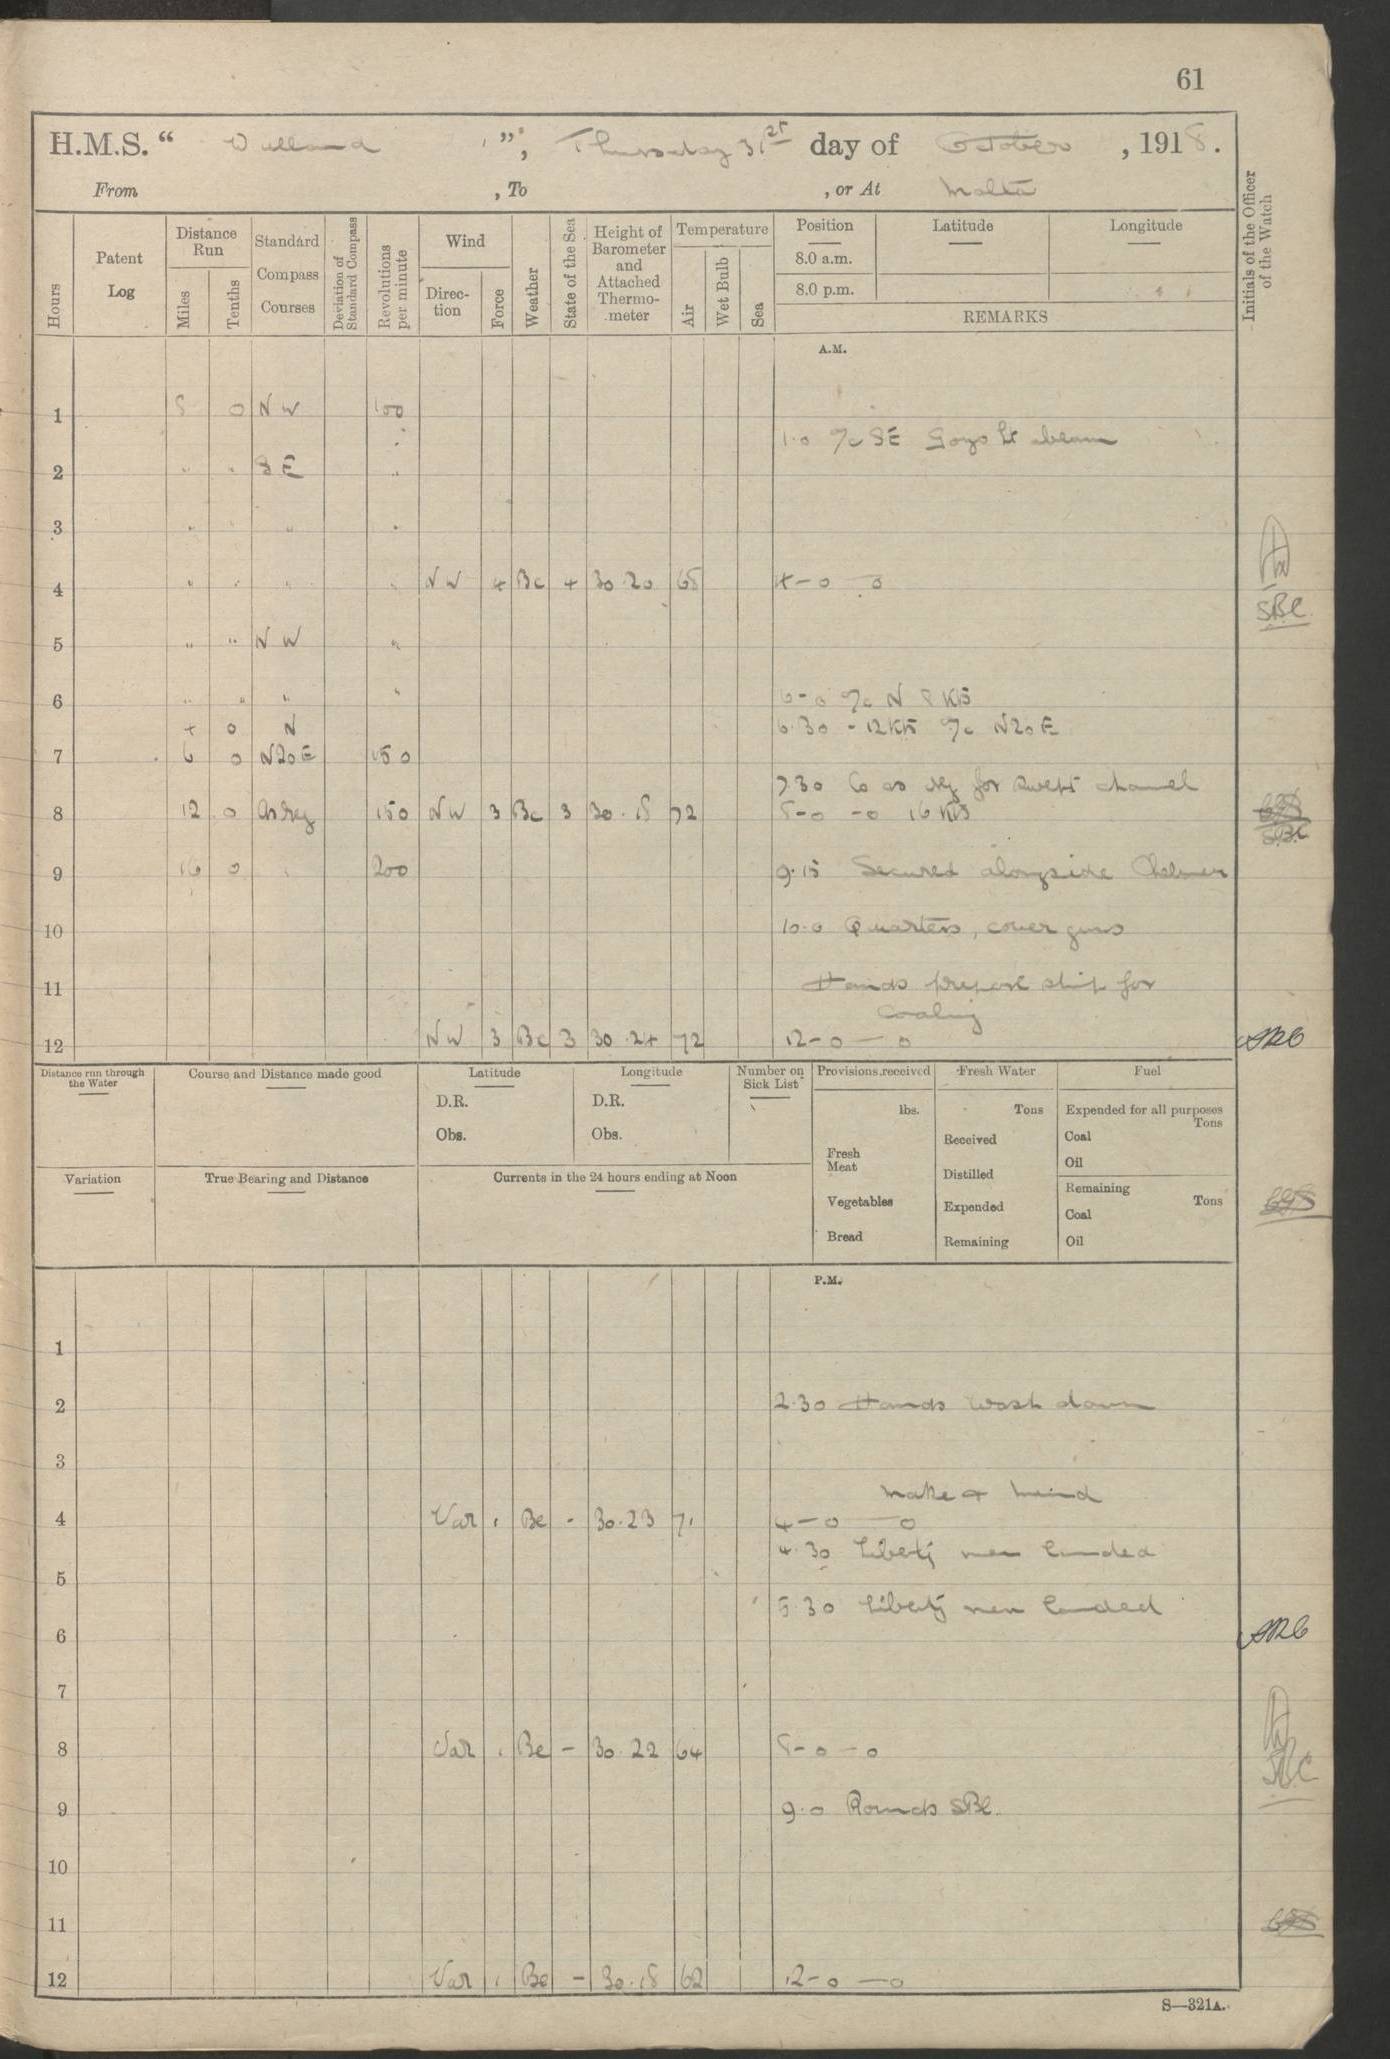 61
H.M.S. “ Welland ”, Thursday 31st day of October , 1918.
From , To , or At Malta
Hours
Patent Log
Distance Run
Miles
Tenths
Standard Compass Courses
Deviation of Standard Compass
Revolutions per minute
Wind
Direction
Force
Weather
State of the Sea
Height of Barometer and Attached Thermometer
Temperature
Air
Wet Bulb
Sea
Position
8.0 a.m.
8.0 p.m.
Latitude
Longitude
REMARKS
Initials of the Officer of the Watch
A.M.
1 8 0 NW 100
1.0 a/c SE Gozo Lt abeam
2 " " SE "
3 " " " "
4 " " " " NW 4 Bc 4 30.20 68 4-0 - 0
SBC
5 " " NW "
6 " " " " 6-0 a/c N 8 Kts
4 0 N 6.30 - 12 Kts a/c N20E
7 6 0 N20E 150
7.30 Co as req for swept channel
8 12 0 As req 150 NW 3 Bc 3 30.18 72 8-0 -0 16 Kts
SBC
9 16 0 200 9.15 Secured alongside Chelmer
10 10.0 Quarters, cover guns
11 Hands prepare ship for
coaling
12 NW 3 Bc 3 30.24 72 12-0 - 0
Distance run through the Water
Course and Distance made good
Latitude
D.R.
Obs.
Longitude
D.R.
Obs.
Number on Sick List
Provisions received
lbs.
Fresh Meat
Vegetables
Bread
Fresh Water
Tons
Received
Distilled
Expended
Remaining
Fuel
Expended for all purposes
Tons
Coal
Oil
Remaining
Tons
Coal
Oil
Variation
True Bearing and Distance
Currents in the 24 hours ending at Noon
P.M.
1
2 2.30 Hands wash down
3
Make & Mend
4 Var 1 Bc - 30.23 71 4-0 - 0
4.30 Liberty men landed
5
5.30 Liberty men landed
6
7
8 Var 1 Bc - 30.22 64 8-0 - 0
SBC
9 9.0 Rounds SBC.
10
11
12 Var 1 Bc - 30.18 62 12-0 - 0
S—321A.